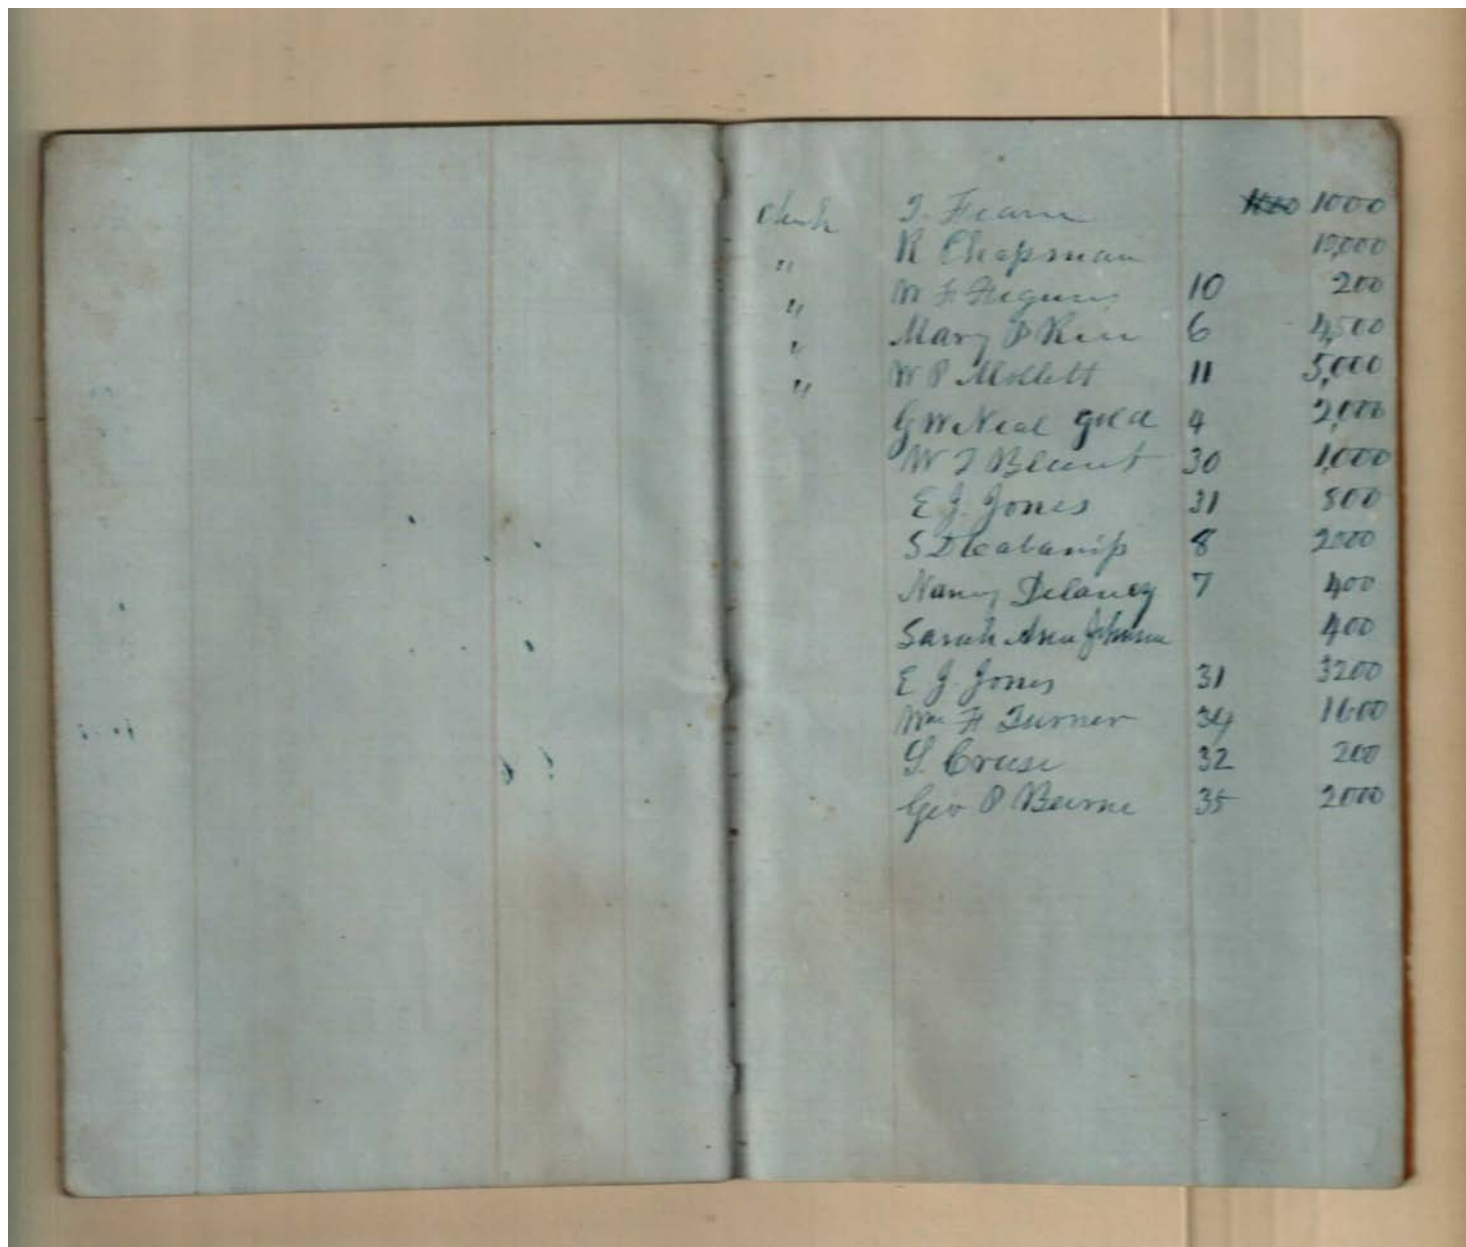 Check T. Fearn 1000
" R Chapman 15,000
" W F Figures 10 200
" Mary P Rice 6 4,500
" W P Mollett 11 5,000
G W Neal gold 4 2,000
W T Blunt 30 1,000
E J. Jones 31 500
S D Cabaniss 8 2000
Nancy Delaney 7 400
Sarah Ann Johnson 400
E J. Jones 31 3200
Wm H Turner 34 1600
S. Cruse 32 200
Geo P Beirne 35 2000